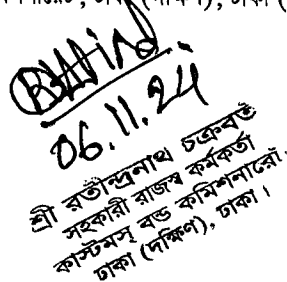 (দক্ষিণ),
06.11.24
শ্রী রতীন্দ্রনাথ চক্রবর্ত
সহকারী রাজস্ব কর্মকর্তা
কাস্টমস্ বন্ড কমিশনারে
ঢাকা (দক্ষিণ), ঢাকা।